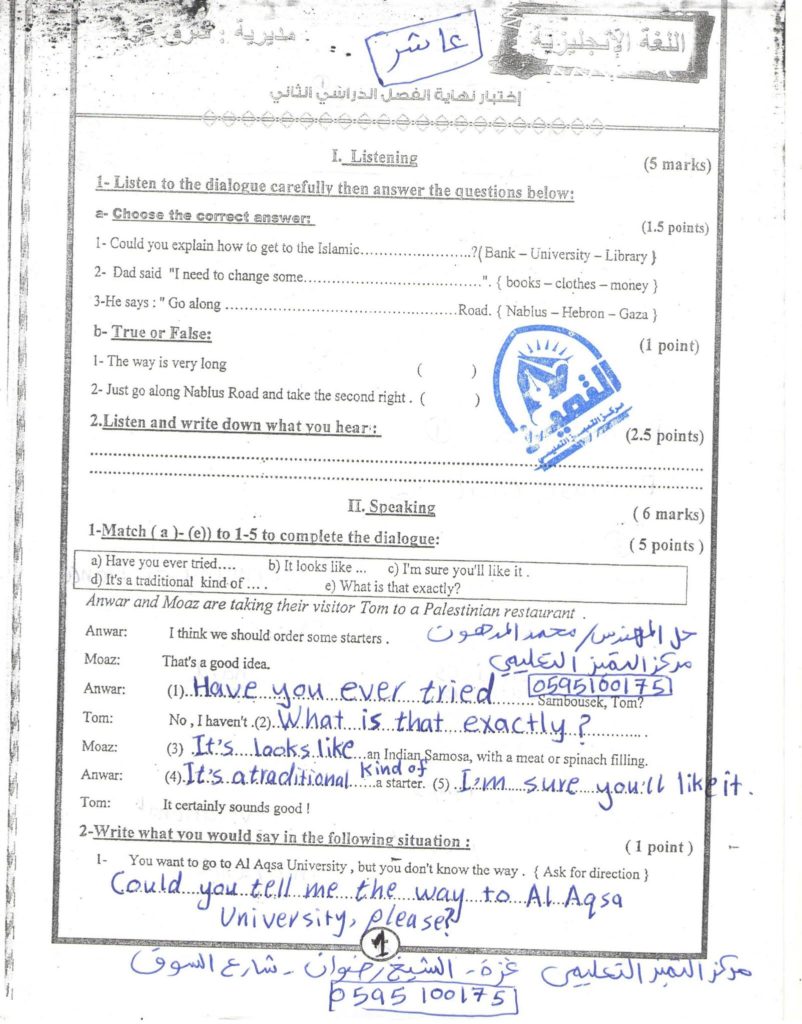 اللغة الإنجليزية
عاشر
مديرية :
إختبار نهاية الفصل الدراسي الثاني
I. Listening (5 marks)
1- Listen to the dialogue carefully then answer the questions below:
a- Choose the correct answer: (1.5 points)
1- Could you explain how to get to the Islamic....................?{ Bank – University – Library }
2- Dad said "I need to change some..........................................". { books – clothes – money }
3-He says : " Go along ......................................................Road. { Nablus – Hebron – Gaza }
b- True or False: (1 point)
1- The way is very long ( )
2- Just go along Nablus Road and take the second right . ( )
2.Listen and write down what you hear : (2.5 points)
مركز التميز التعليمي
II. Speaking ( 6 marks)
1-Match ( a )- (e)) to 1-5 to complete the dialogue: ( 5 points )
a) Have you ever tried.... b) It looks like ... c) I'm sure you'll like it .
d) It's a traditional kind of .... e) What is that exactly?
Anwar and Moaz are taking their visitor Tom to a Palestinian restaurant .
Anwar: I think we should order some starters . حل المهندس/ محمد المدهون
Moaz: That's a good idea. مركز التميز التعليمي
0595100175
Anwar: (1) Have you ever tried Sambousek, Tom?
Tom: No, I haven't .(2) What is that exactly ?
Moaz: (3) It's looks like an Indian Samosa, with a meat or spinach filling.
Anwar: (4) It's a traditional kind of a starter. (5) I'm sure you'll like it .
Tom: It certainly sounds good !
2-Write what you would say in the following situation : ( 1 point )
1- You want to go to Al Aqsa University , but you don't know the way . { Ask for direction }
Could you tell me the way to Al Aqsa
University, please?
1
مركز التميز التعليمي غزة - الشيخ رضوان - شارع السوق
0595 100175